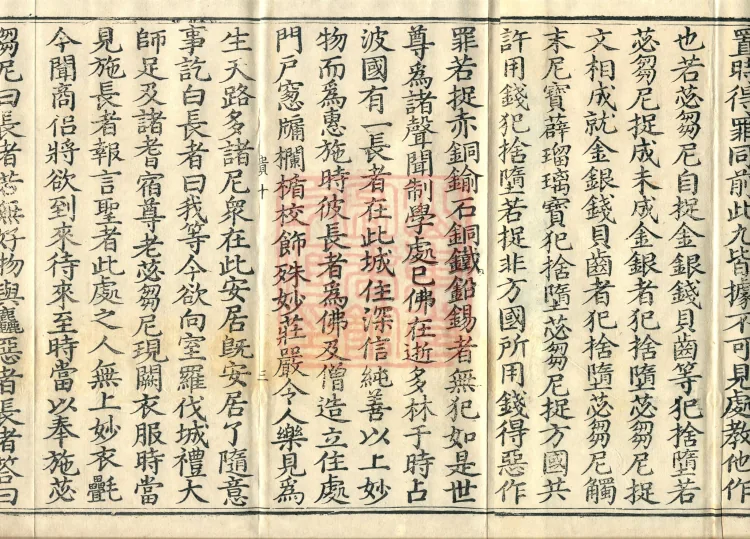 置時得罪同前此九皆據不可見處教他作
也若苾芻尼自捉金銀錢貝齒等犯捨墮若
苾芻尼捉成未成金銀者犯捨墮苾芻尼捉
文相成就金銀錢貝齒者犯捨墮苾芻尼觸
末尼寶薜瑠璃寶犯捨墮苾芻尼捉方國共
許用錢犯捨墮若捉非方國所用錢得惡作
罪若捉赤銅鍮石銅鐵鉛錫者無犯如是世
尊為諸聲聞制學處已佛在逝多林于時占
波國有一長者在此城住深信純善以上妙
物而為惠施時彼長者為佛及僧造立住處
門戶窓牖欄楯校飾殊妙莊嚴令人樂見為
貴十 三
生天路多諸尼衆在此安居旣安居了隨意
事訖白長者曰我等今欲向室羅伐城禮大
師足及諸耆宿尊老苾芻尼現闕衣服時當
見施長者報言聖者此處之人無上妙衣㲲
今聞商侶將欲到來待來至時當以奉施苾
芻尼曰長者若無好物與麤惡者長者答曰